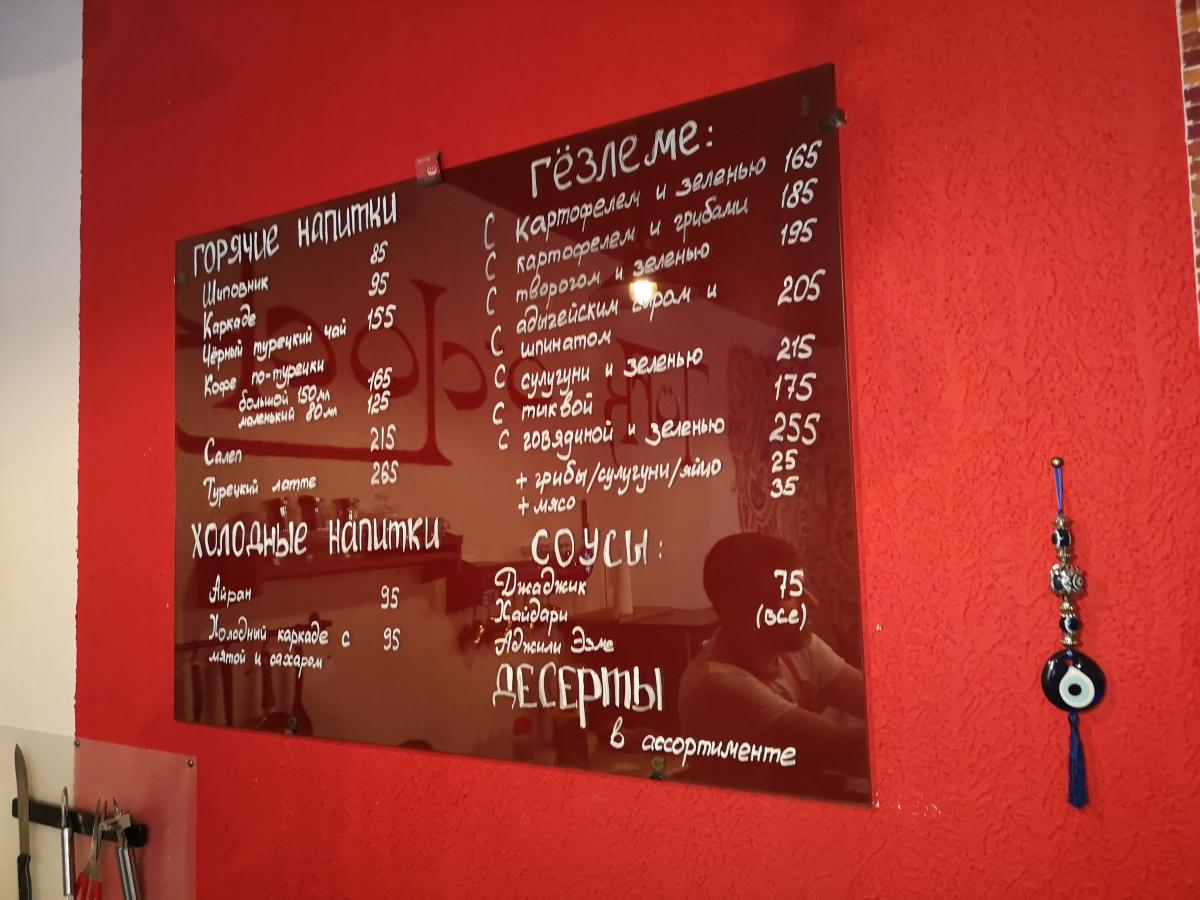 ГОРЯЧИЕ НАПИТКИ
Шиповник 85
Каркаде 95
Чёрный турецкий чай 155
Кофе по-турецки
большой 150мл 165
маленький 80мл 125
Салеп 215
Турецкий латте 265
ХОЛОДНЫЕ НАПИТКИ
Айран 95
Холодный каркаде с 95
мятой и сахаром
ГЁЗЛЕМЕ:
С картофелем и зеленью 165
С картофелем и грибами 185
С творогом и зеленью 195
С адыгейским сыром и 205
шпинатом
С сулугуни и зеленью 215
С тыквой 175
С говядиной и зеленью 255
+ грибы/сулугуни/яйцо 25
+ мясо 35
СОУСЫ:
Джаджик 75
Хайдари (все)
Аджили Эзме
ДЕСЕРТЫ
в ассортименте